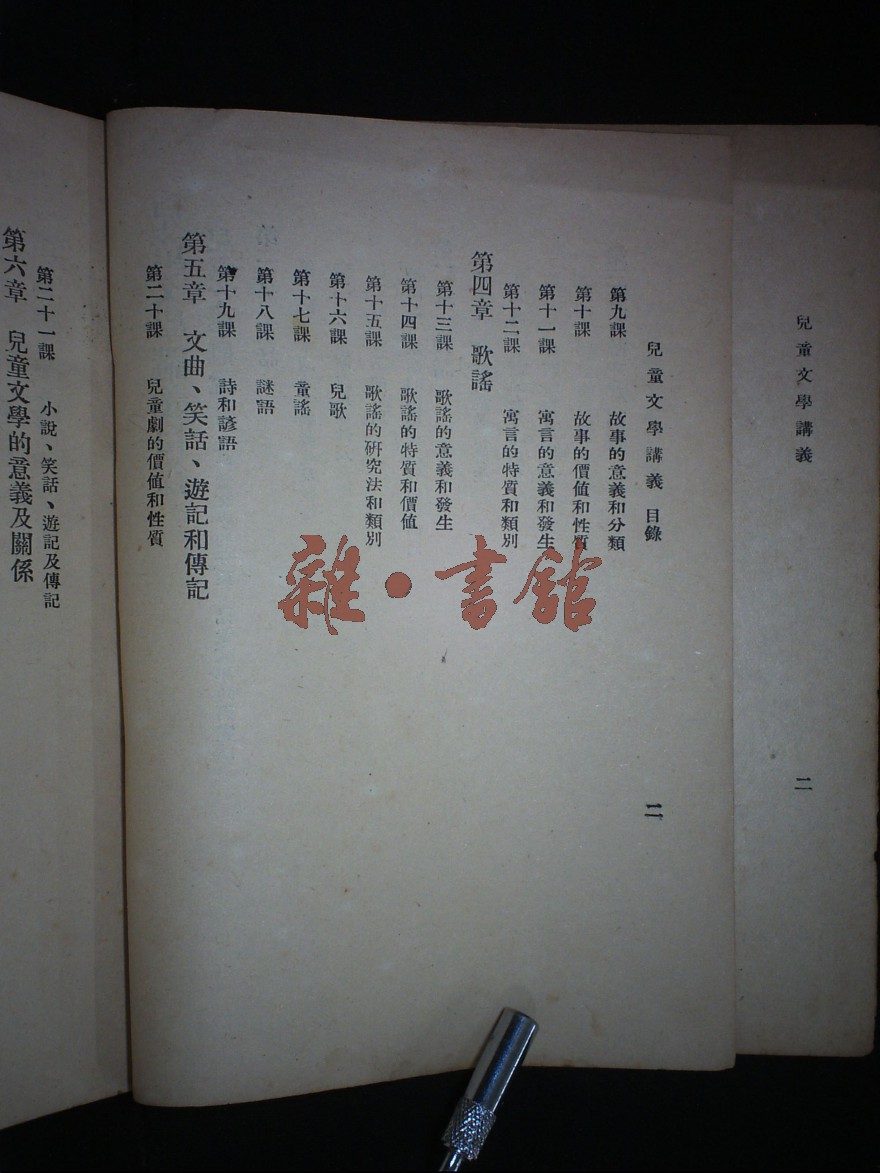 兒童文學講義
二
兒童文學講義 目錄
二
第九課 故事的意義和分類
第十課 故事的價值和性質
第十一課 寓言的意義和發生
第十二課 寓言的特質和類別
第四章 歌謠
第十三課 歌謠的意義和發生
第十四課 歌謠的特質和價値
第十五課 歌謠的研究法和類別
第十六課 兒歌
第十七課 童謠
第十八課 謎語
第十九課 詩和諺語
第五章 文曲、笑話、遊記和傳記
第二十課 兒童劇的價値和性質
第二十一課 小說、笑話、遊記及傳記
第六章 兒童文學的意義及關係
雜·書館